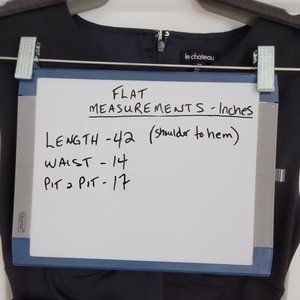 le chateau
FLAT
MEASUREMENTS - Inches
LENGTH - 42 (shoulder to hem)
WAIST - 14
PIT 2 PIT - 17